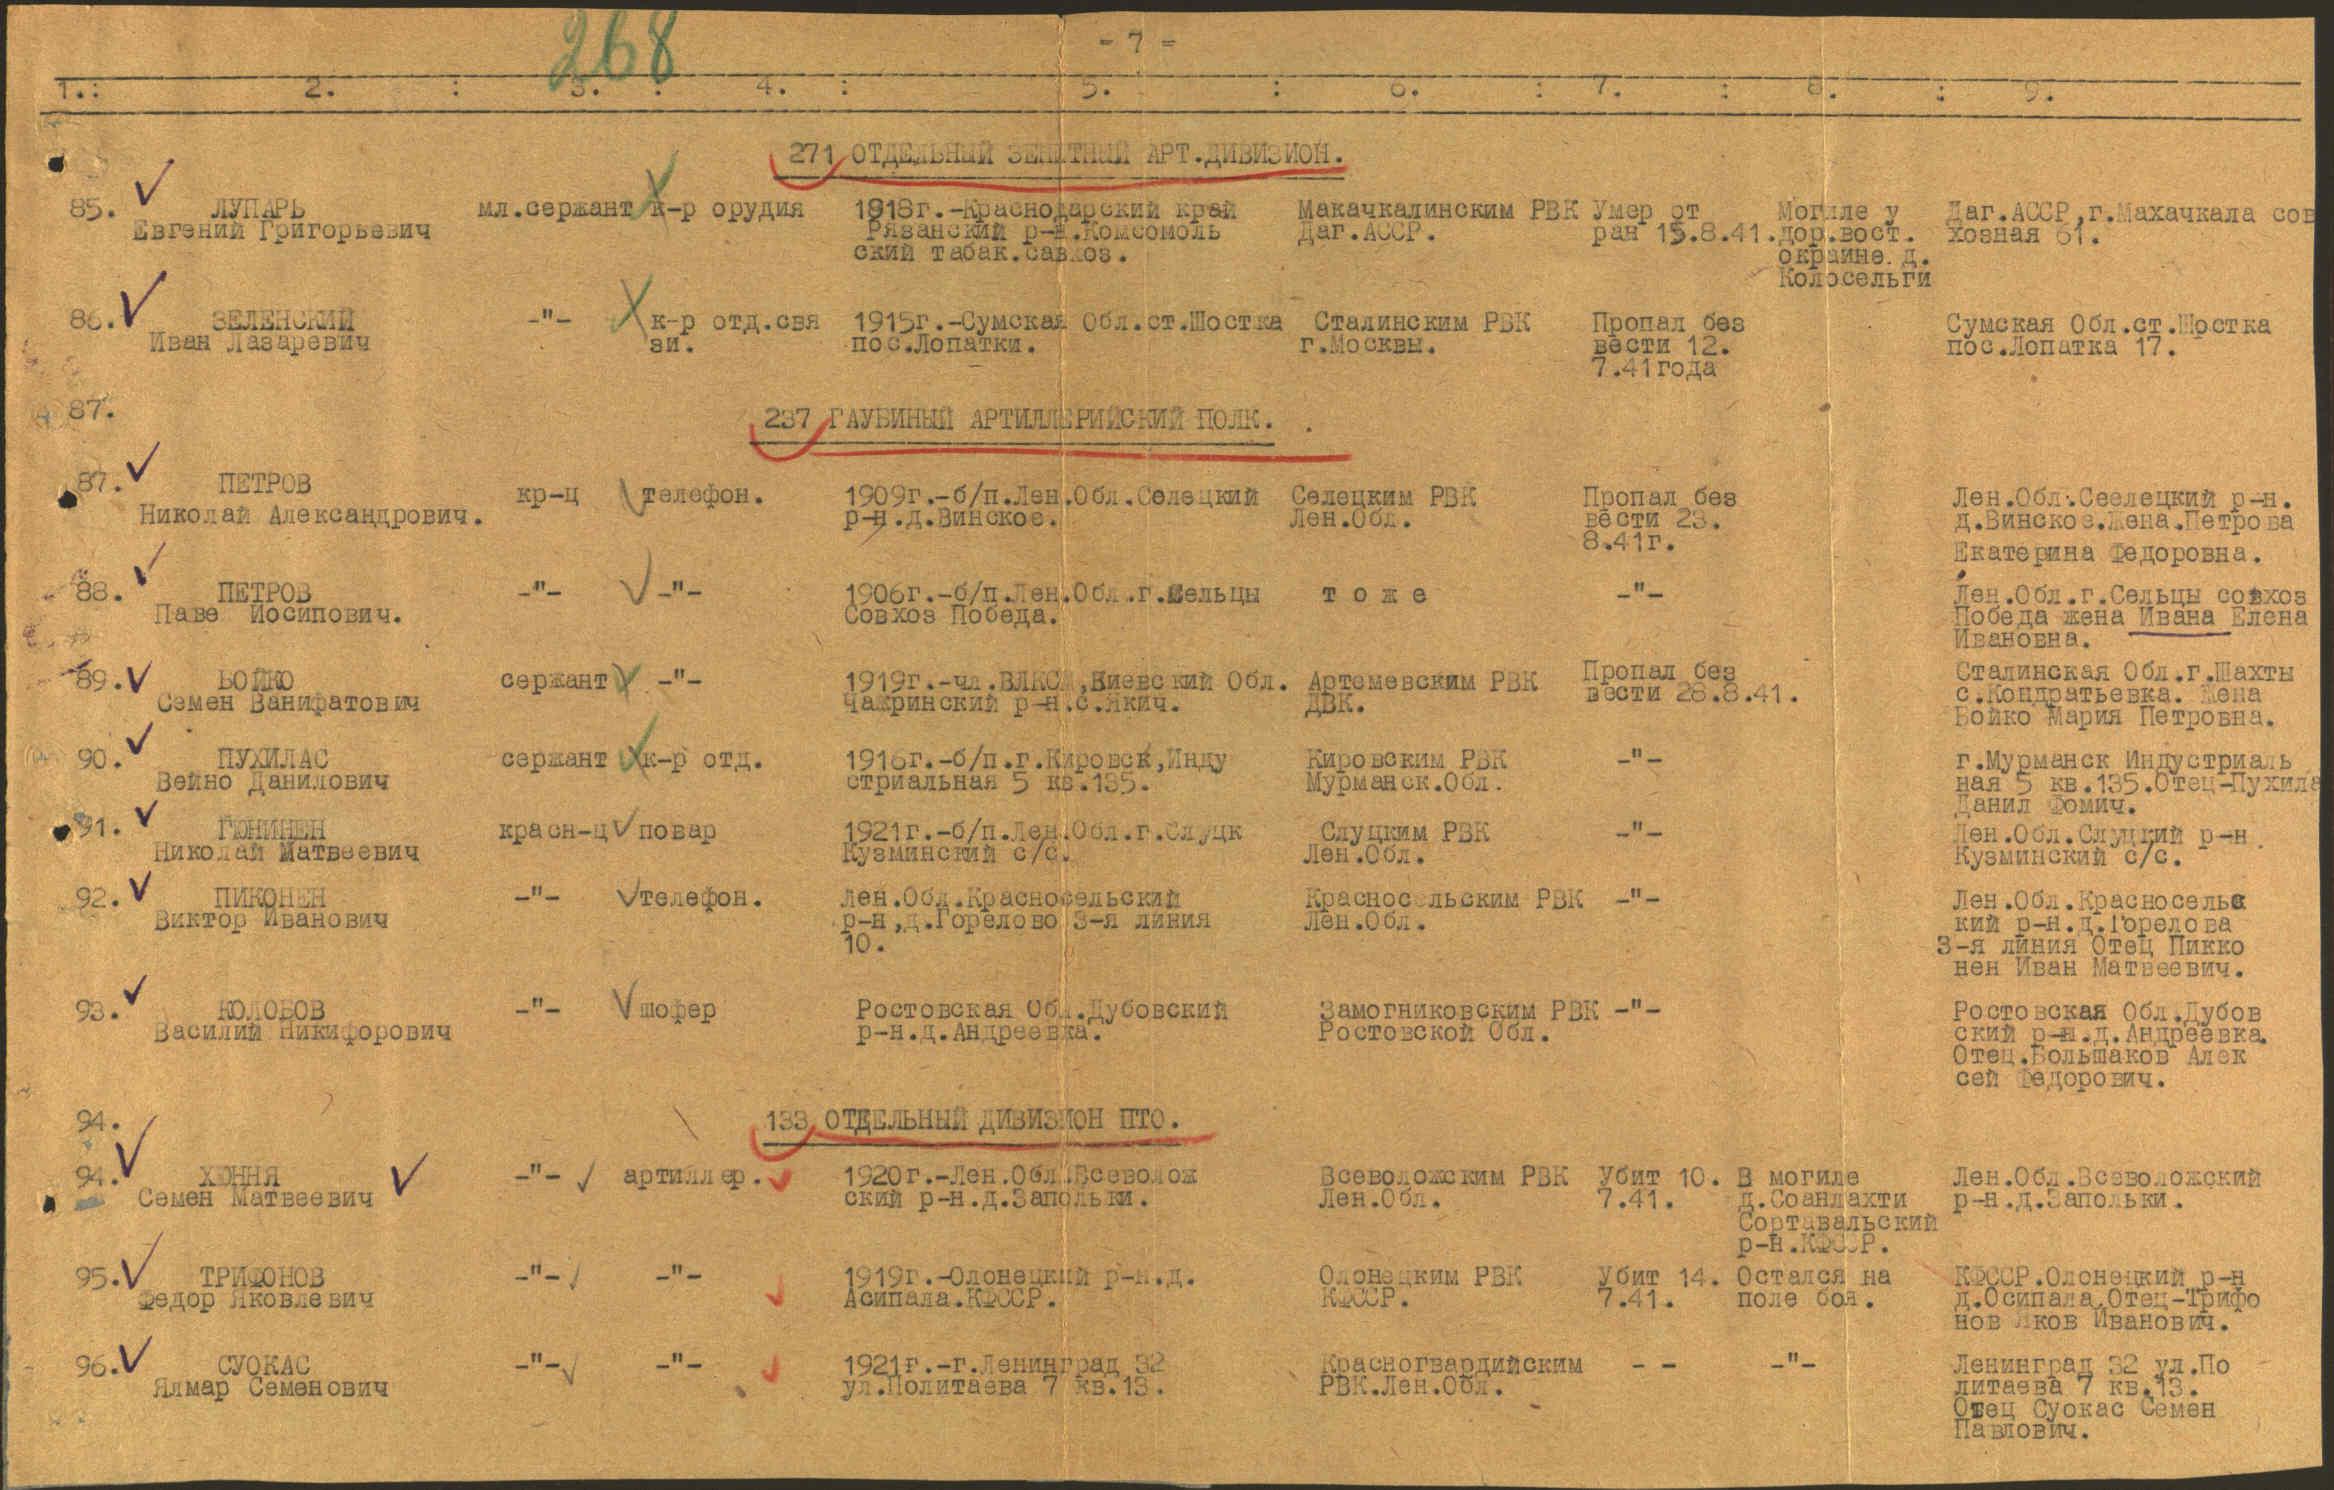 268
- 7 -
1.: 2. : 3. : 4. : 5. : 6. : 7. : 8. : 9.
271 ОТДЕЛЬНЫЙ ЗЕНИТНЫЙ АРТ.ДИВИЗИОН.
85. ЛУПАРЬ мл.сержант к-р орудия 1918г.-Краснодарский край Макачкалинским РВК Умер от Могиле у Даг.АССР,г.Махачкала сов
Евгений Григорьевич Рязанский р-н.Комсомоль Даг.АССР. ран 15.8.41. дор.вост. хозная 61.
ский табак.савхоз. окраине д.
Колосельги
86. ЗЕЛЕНСКИЙ -"- к-р отд.свя 1915г.-Сумская Обл.ст.Шостка Сталинским РВК Пропал без Сумская Обл.ст.Шостка
Иван Лазаревич зи. пос.Лопатки. г.Москвы. вести 12. пос.Лопатка 17.
7.41года
87.
237 ГАУБИНЫЙ АРТИЛЛЕРИЙСКИЙ ПОЛК.
87. ПЕТРОВ кр-ц телефон. 1909г.-б/п.Лен.Обл.Селецкий Селецким РВК Пропал без Лен.Обл.Сеелецкий р-н.
Николай Александрович. р-н.д.Винское. Лен.Обл. вести 23. д.Винское.Жена.Петрова
8.41г. Екатерина Федоровна.
88. ПЕТРОВ -"- -"- 1906г.-б/п.Лен.Обл.г.Сельцы т о ж е -"- Лен.Обл.г.Сельцы совхоз
Паве Иосипович. Совхоз Победа. Победа жена Ивана Елена
Ивановна.
89. БОЙКО сержант -"- 1919г.-чл.ВЛКСМ,Киевский Обл. Артемевским РВК Пропал без Сталинская Обл.г.Шахты
Семен Ванифатович Чажринский р-н.с.Якич. ДВК. вести 28.8.41. с.Кондратьевка. Жена
Бойко Мария Петровна.
90. ПУХИЛАС сержант к-р отд. 1916г.-б/п.г.Кировск,Инду Кировским РВК -"- г.Мурманск Индустриаль
Вейно Данилович стриальная 5 кв.135. Мурманск.Обл. ная 5 кв.135.Отец-Пухила
Данил Фомич.
91. ГЮНИНЕН красн-ц повар 1921г.-б/п.Лен.Обл.г.Слуцк Слуцким РВК -"- Лен.Обл.Слуцкий р-н
Николай Матвеевич Кузминский с/с. Лен.Обл. Кузминский с/с.
92. ПИКОНЕН -"- телефон. Лен.Обл.Красносельский Красносельским РВК -"- Лен.Обл.Красносельс
Виктор Иванович р-н,д.Горелово 3-я линия Лен.Обл. кий р-н.д.Горелова
10. 3-я линия Отец Пикко
нен Иван Матвеевич.
93. КОЛОБОВ -"- шофер Ростовская Обл.Дубовский Замогниковским РВК -"- Ростовская Обл.Дубов
Василий Никифорович р-н.д.Андреевка. Ростовской Обл. ский р-н.д.Андреевка.
Отец.Большаков Алек
сей Федорович.
94.
133 ОТДЕЛЬНЫЙ ДИВИЗИОН ПТО.
94. ХЮННЯ -"- артиллер. 1920г.-Лен.Обл.Всеволож Всеволожским РВК Убит 10. В могиле Лен.Обл.Всеволожский
Семен Матвеевич ский р-н.д.Запольки. Лен.Обл. 7.41. д.Соанлахти р-н.д.Запольки.
Сортавальский
р-н.КФССР.
95. ТРИФОНОВ -"- -"- 1919г.-Олонецкий р-н.д. Олонецким РВК Убит 14. Остался на КФССР.Олонецкий р-н
Федор Яковлевич Асипала.КФССР. КФССР. 7.41. поле боя. д.Осипала.Отец-Трифо
нов Яков Иванович.
96. СУОКАС -"- -"- 1921г.-г.Ленинград 32 Красногвардийским - - -"- Ленинград 32 ул.По
Ялмар Семенович ул.Политаева 7 кв.13. РВК.Лен.Обл. литаева 7 кв.13.
Отец Суокас Семен
Павлович.